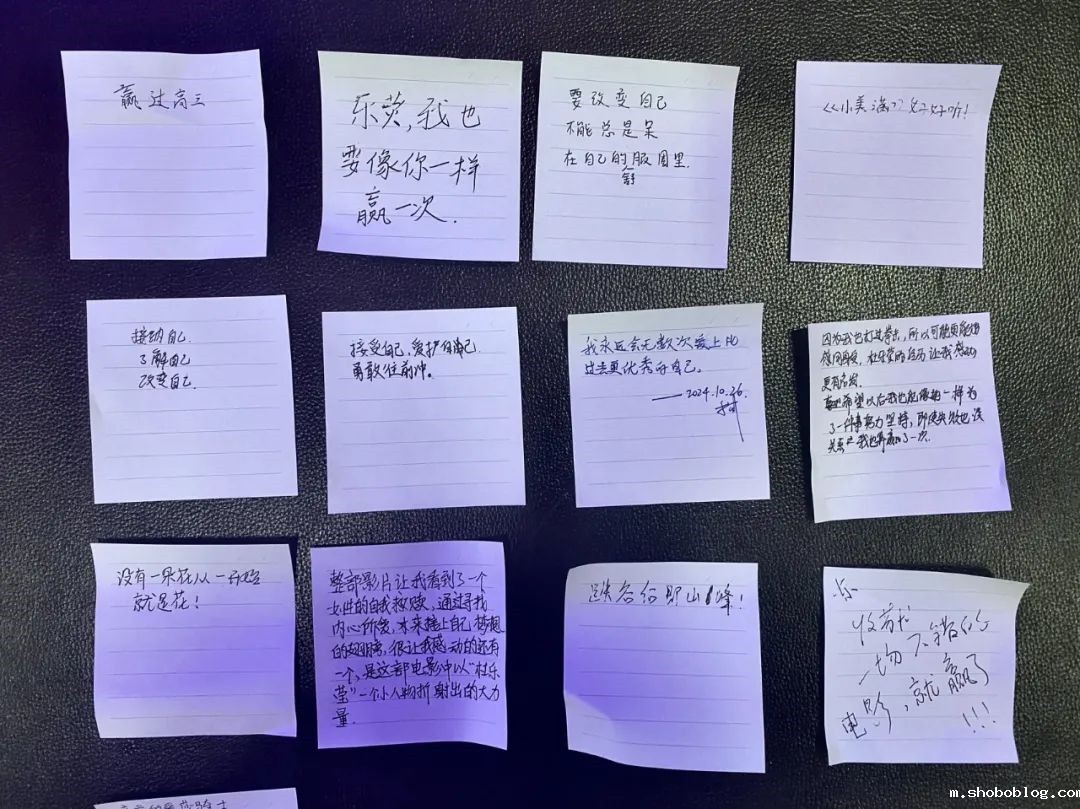 赢过高三
乐莹,我也
要像你一样
赢一次.
要改变自己
不能总是呆
在自己的服圈里.
舒
《小美满》好好听!
接纳自己
了解自己
改变自己.
接受自己,爱护自己
勇敢往前冲。
我永远会无数次爱上比
过去更优秀的自己。
——2024.10.26.
因为我也打过拳击,所以可能更能
杜乐莹的经历让我感动
更有
希望以后我也能像她一样为
了一件事努力坚持,即使失败也没
关系,我也算赢了一次.
没有一朵花从一开始
就是花!
整部影片让我看到了一个
女性的自我救赎,通过寻找
内心所爱,来接上自己梦想
的翅膀,很让我感动的还有
一个,是这部电影中以“杜乐
莹”一个小人物折射出的大力
量.
跌谷后即山峰!
乐
收获
一场不错的
电影,就赢了
!!!
m.shoboblog.com